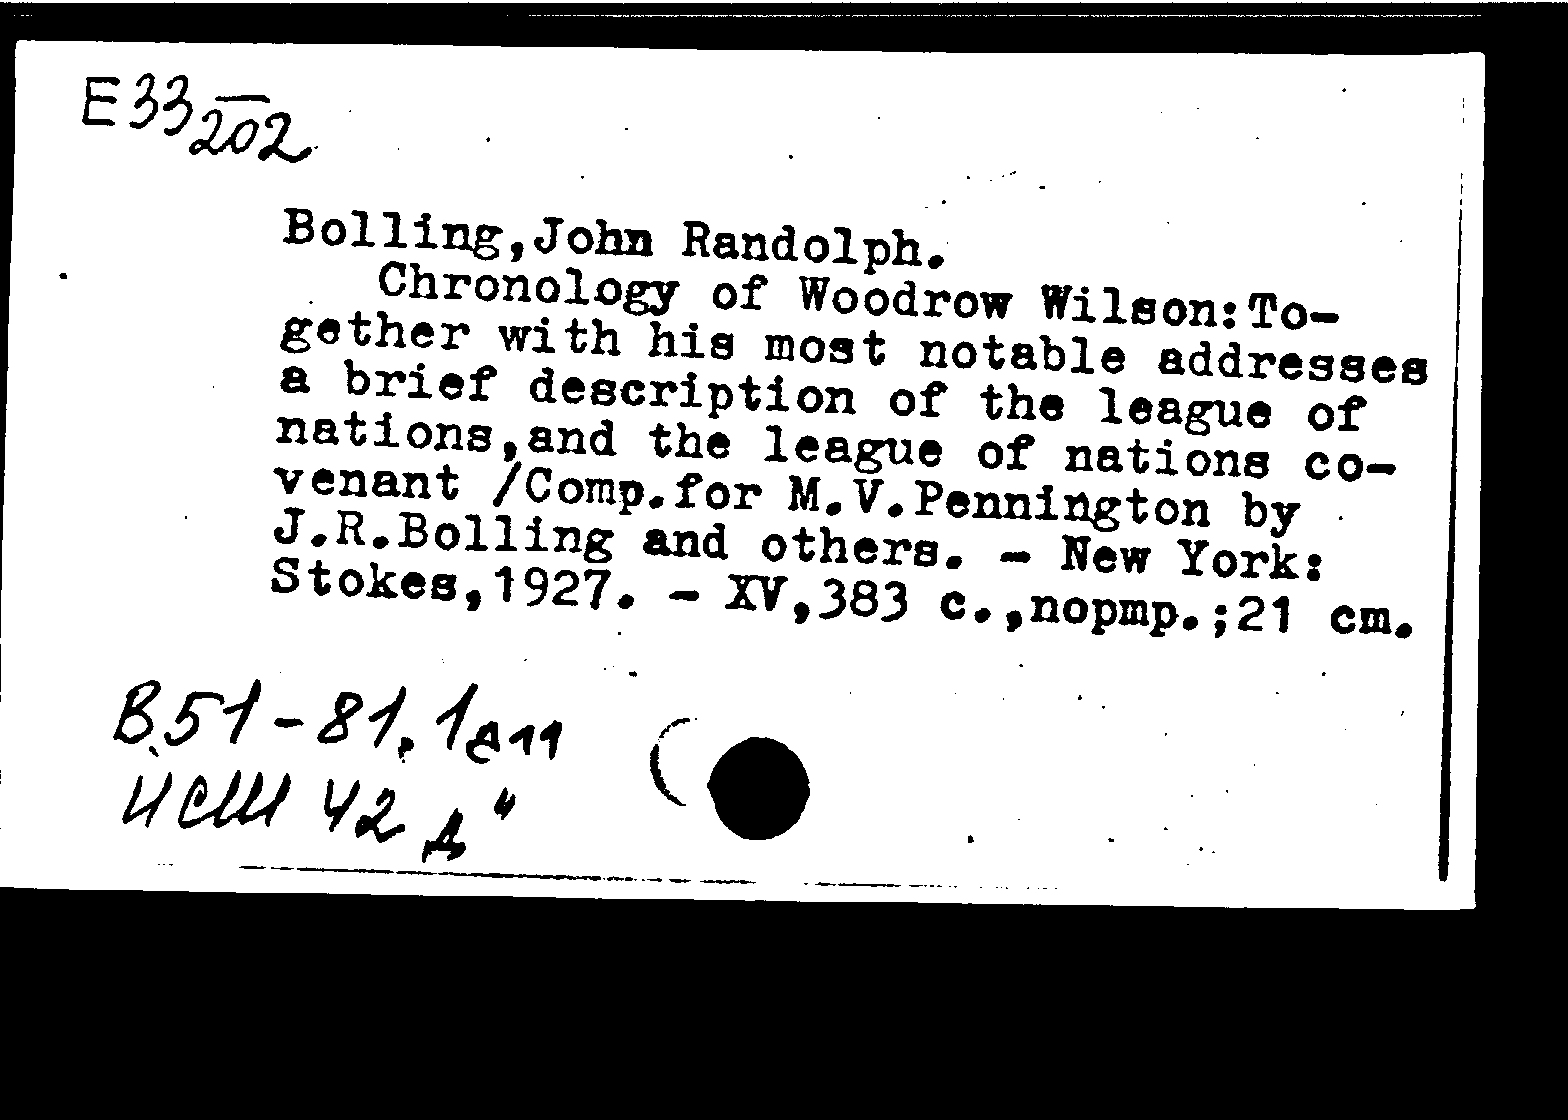 E33
202
Bolling,John Randolph.
Chronology of Woodrow Wilson:To-
gether with his most notable addresses
a brief description of the league of
nations,and the league of nations co-
venant /Comp.for M.V.Pennington by
J.R.Bolling and others. - New York:
Stokes,1927. - XV,383 c.,портр.;21 cm.
B.51-81.
42